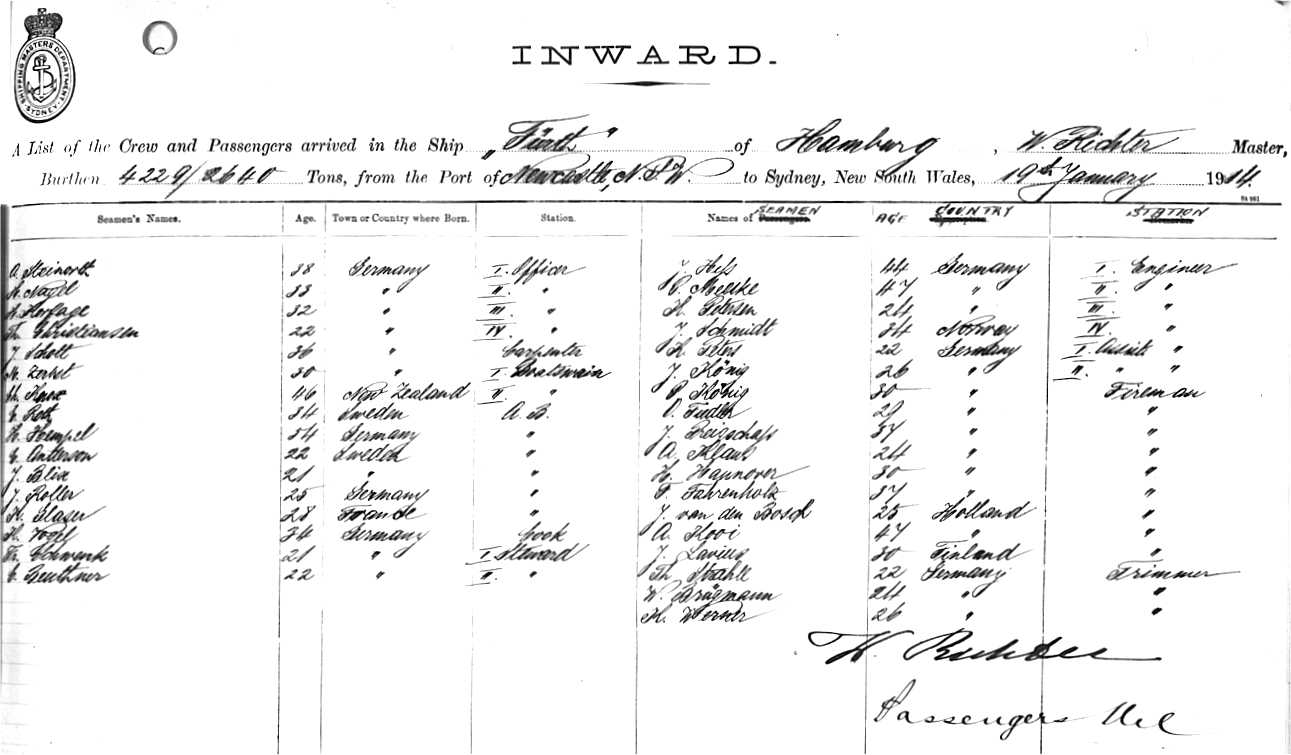 SHIPPING MASTERS DEPARTMENT SYDNEY
INWARD.
A List of the Crew and Passengers arrived in the Ship „Fürth" of Hamburg, W. Richter Master,
Burthen 4229/2640 Tons, from the Port of Newcastle, N.S.W. to Sydney, New South Wales, 19th January 1914.
Seamen's Names. Age. Town or Country where Born. Station. Names of SEAMEN AGE COUNTRY STATION
A. Steinorth 38 Germany I. Officer Hess 44 Germany I. Engineer
Nagel 33 " II. " Meelke 47 " II. "
Herfage 32 " III. " H. Petersen 24 " III. "
Th. Christiansen 22 " IV. " J. Schmidt 34 Norway IV. "
J. Schott 36 " Carpenter Peters 22 Germany I. Assist. "
Zerbst 30 " I. Boatswain J. König 26 " II. " "
46 New Zealand II. " P. König 30 " Fireman
Roth 34 Sweden A.B. O. 29 " "
Hempel 54 Germany " J. 37 " "
Anderson 22 Sweden " A. Klaus 24 " "
J. Blix 21 " " H. Hannover 30 " "
J. Roller 25 Germany " F. Fahrenholz 37 " "
Glaser 28 France " J. van den Bosch 25 Holland "
H. Vogel 34 Germany Cook A. Kooi 47 " "
Schwenk 21 " I. Steward J. Lavius 30 Finland "
Beuthner 22 " II. " Th. Stahle 22 Germany Trimmer
W. Brügmann 24 " "
H. Werner 26 " "
W. Richter
Passengers Nil